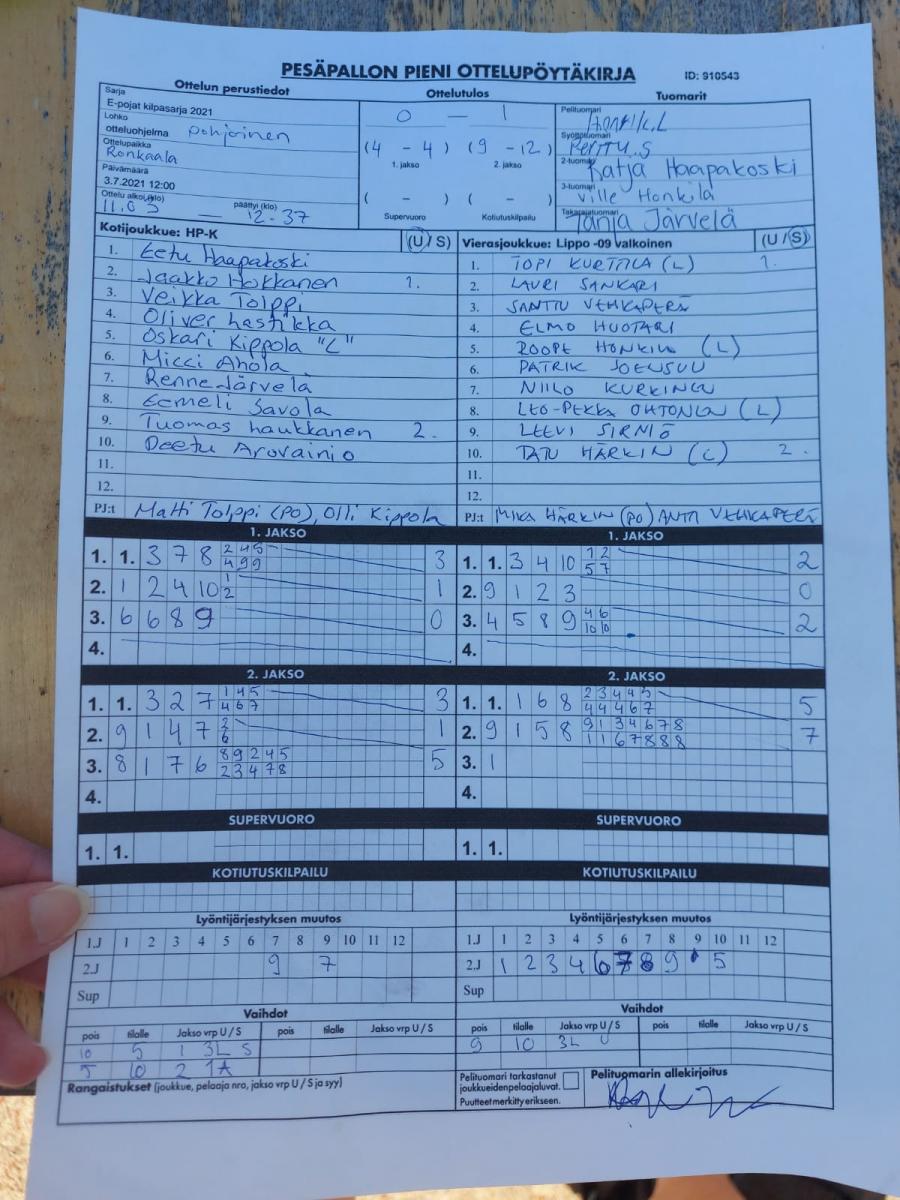 PESÄPALLON PIENI OTTELUPÖYTÄKIRJA ID: 910543
Ottelun perustiedot Ottelutulos Tuomarit
Sarja
E-pojat kilpasarja 2021
Lohko
otteluohjelma pohjoinen
Ottelupaikka
Ronkaala
Päivämäärä
3.7.2021 12:00
Ottelu alkoi (klo) päättyi (klo)
11.03 — 12.37
0 — 1
(4 - 4) (9 - 12)
1. jakso 2. jakso
( - ) ( - )
Supervuoro Kotiutuskilpailu
Pelituomari
Syöttötuomari
PERTTU.S
2-tuomari
Katja Haapakoski
3-tuomari
Ville Honkila
Takarajatuomari
Tanja Järvelä
Kotijoukkue: HP-K (U / S)
1. Eetu Haapakoski
2. Jaakko Hokkanen 1.
3. Veikka Tolppi
4. Oliver Lastikka
5. Oskari Kippola "L"
6. Micci Ahola
7. Renne Järvelä
8. Eemeli Savola
9. Tuomas Laukkanen 2.
10. Deetu Arovainio
11.
12.
PJ:t Matti Tolppi (PO), Olli Kippola
Vierasjoukkue: Lippo -09 valkoinen (U / S)
1. TOPI KURTTILA (L) 1.
2. LAURI SANKARI
3. SANTTU VEHKAPERÄ
4. ELMO HUOTARI
5. ROOPE HONKIN (L)
6. PATRIK JOENSUU
7. NIILO KURKINEN
8. LEO-PEKKA OHTONEN (L)
9. LEEVI SIRNIÖ
10. TATU HÄRKIN (L) 2.
11.
12.
PJ:t MIKA HÄRKIN (PO) ANTTI VEHKAPERÄ
1. JAKSO
1. 1. 3 7 8 2 4 5 3
4 9 9
2. 1 2 4 10 1 1
2
3. 6 6 8 9 0
4.
1. JAKSO
1. 1. 3 4 10 1 2 2
5 7
2. 9 1 2 3 0
3. 4 5 8 9 4 6 2
10 10
4.
2. JAKSO
1. 1. 3 2 7 1 4 5 3
4 6 7
2. 9 1 4 7 2 1
6
3. 8 1 7 6 8 9 2 4 5 5
2 3 4 7 8
4.
2. JAKSO
1. 1. 1 6 8 2 3 4 4 5 5
4 4 4 6 7
2. 9 1 5 8 9 1 3 4 6 7 8 7
1 1 6 7 8 8 8
3. 1
4.
SUPERVUORO
1. 1.
SUPERVUORO
1. 1.
KOTIUTUSKILPAILU
KOTIUTUSKILPAILU
Lyöntijärjestyksen muutos
1.J 1 2 3 4 5 6 7 8 9 10 11 12
2.J 9 7
Sup
Lyöntijärjestyksen muutos
1.J 1 2 3 4 5 6 7 8 9 10 11 12
2.J 1 2 3 4 6 7 8 9 5
Sup
Vaihdot
pois tilalle Jakso vrp U / S pois tilalle Jakso vrp U / S
10 5 1 3L S
5 10 2 1A
Rangaistukset (joukkue, pelaaja nro, jakso vrp U / S ja syy)
Vaihdot
pois tilalle Jakso vrp U / S pois tilalle Jakso vrp U / S
9 10 3L U
Pelituomari tarkastanut
joukkueidenpelaajaluvat.
Puutteet merkitty erikseen.
Pelituomarin allekirjoitus